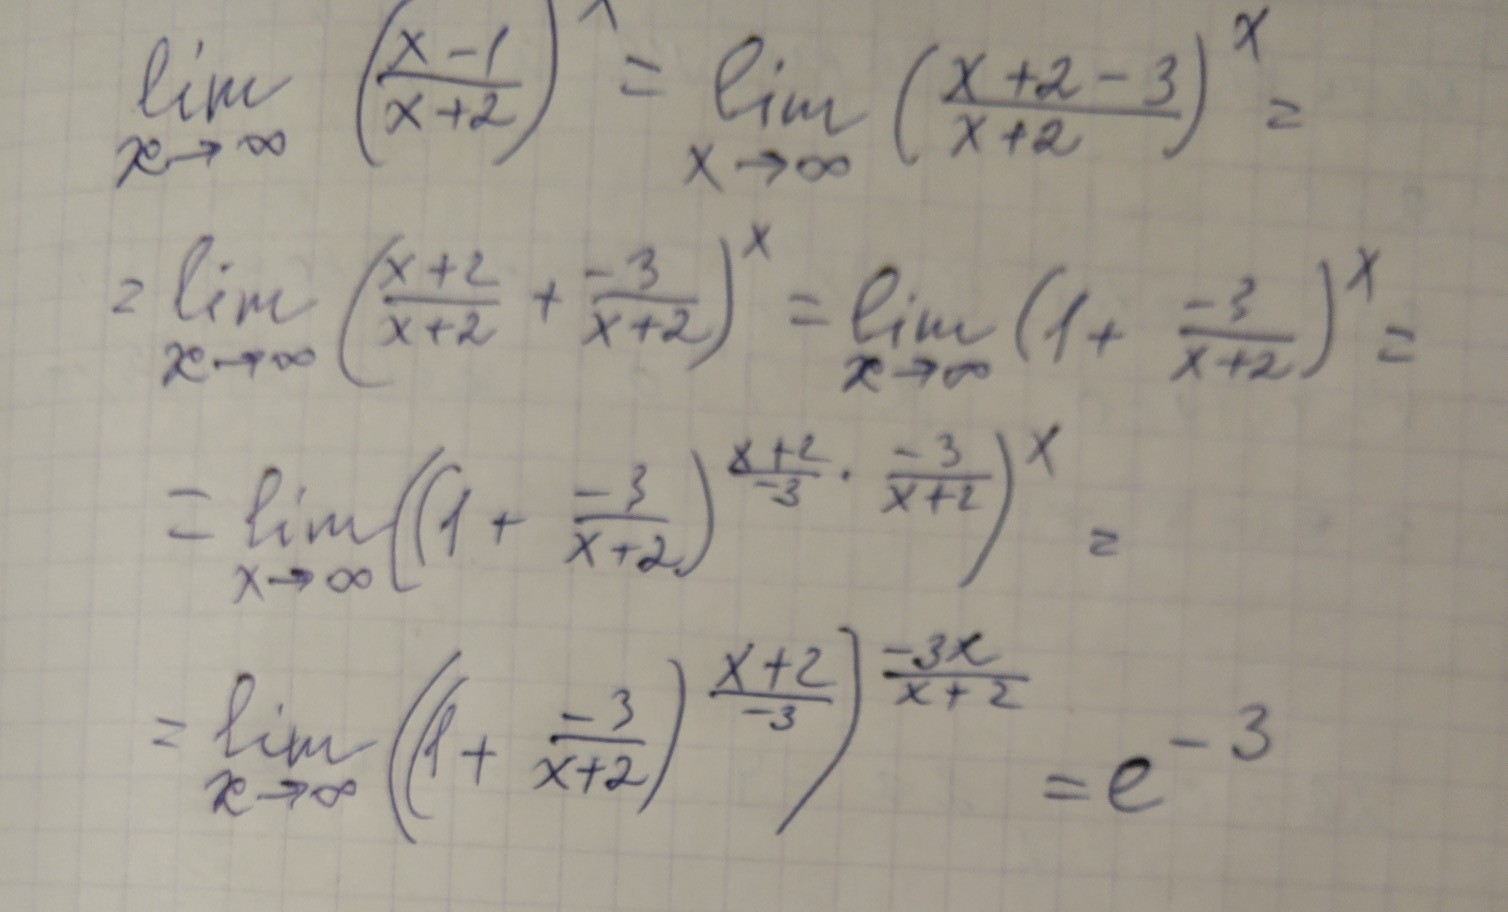 lim x→∞ ((x-1)/(x+2))^x = lim x→∞ ((x+2-3)/(x+2))^x =
= lim x→∞ ((x+2)/(x+2) + (-3)/(x+2))^x = lim x→∞ (1 + (-3)/(x+2))^x =
= lim x→∞ ((1 + (-3)/(x+2))^((x+2)/(-3) · (-3)/(x+2)))^x =
= lim x→∞ ((1 + (-3)/(x+2))^((x+2)/(-3)))^((-3x)/(x+2)) = e^(-3)